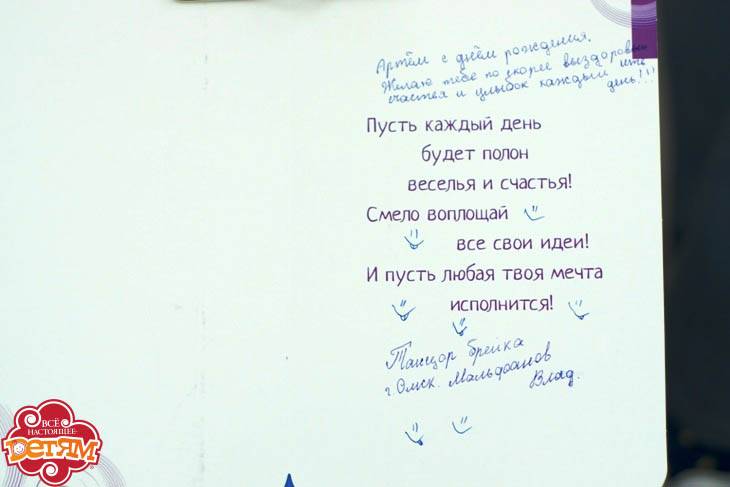 Артём с днём рождения.
Желаю тебе по скорее выздоровить
счастья и улыбок каждый день!!!
Пусть каждый день
будет полон
веселья и счастья!
Смело воплощай
все свои идеи!
И пусть любая твоя мечта
исполнится!
Танцор брейка
г. Омск.
Влад.
ВСЁ
НАСТОЯЩЕЕ
ДЕТЯМ